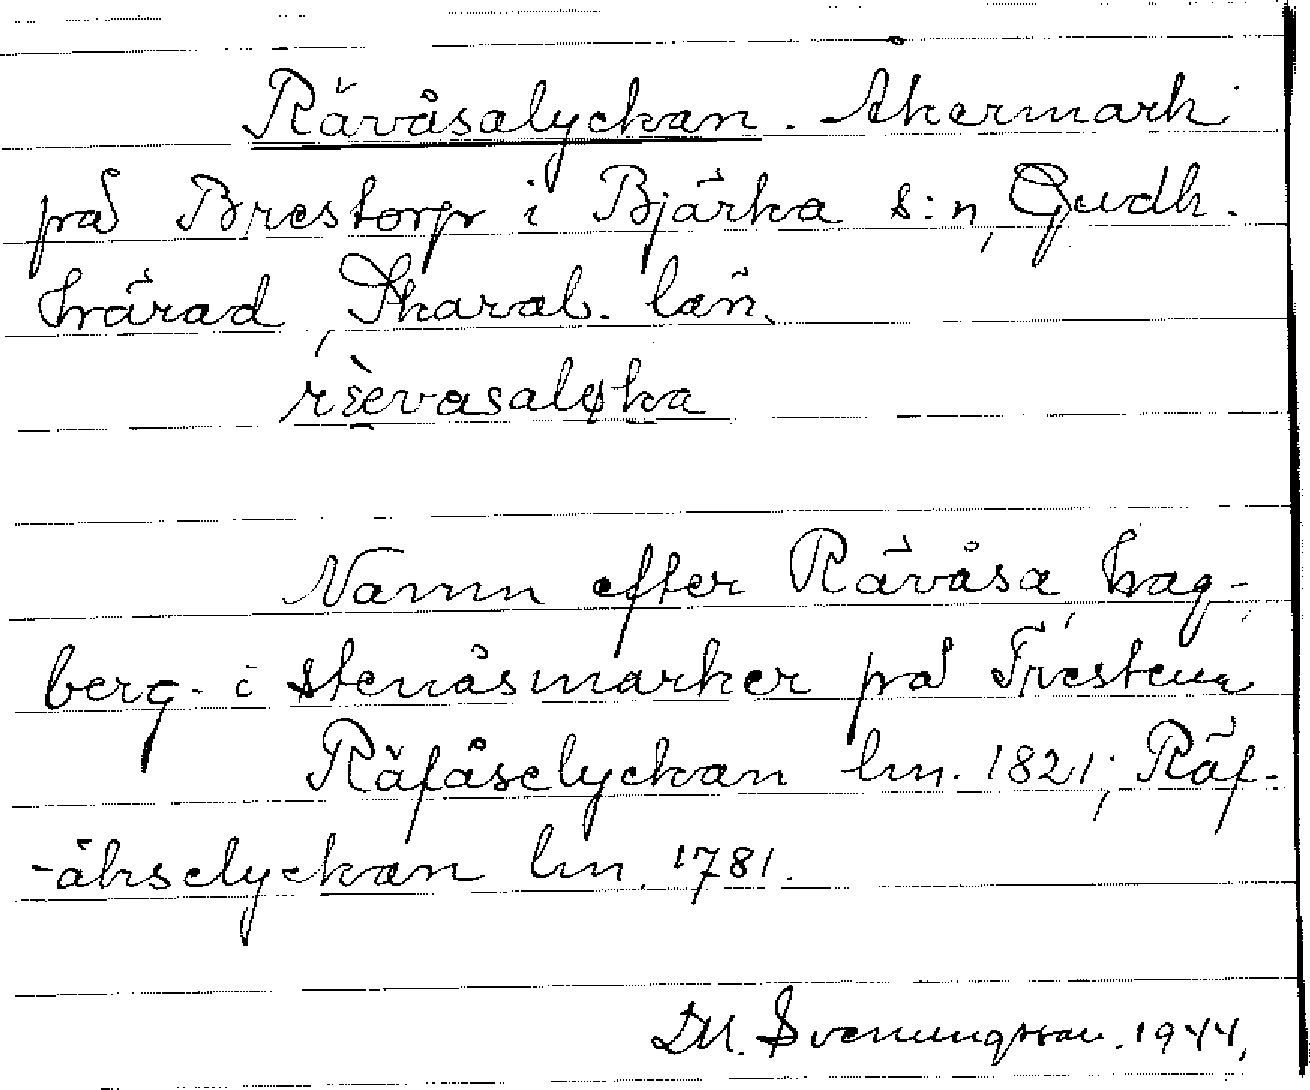 Rävåsalyckan. Åkermark
på Brestorp i Bjärka s:n, Gudh.
härad, Skarab. län.
rævasaløka
Namn efter Rävåsa, hag-
berg i stenåsmarker på Frestena
Räfåselyckan lm. 1821; Räf-
-åhselyckan lm. 1781.
D.M. Svenungsson. 1944.